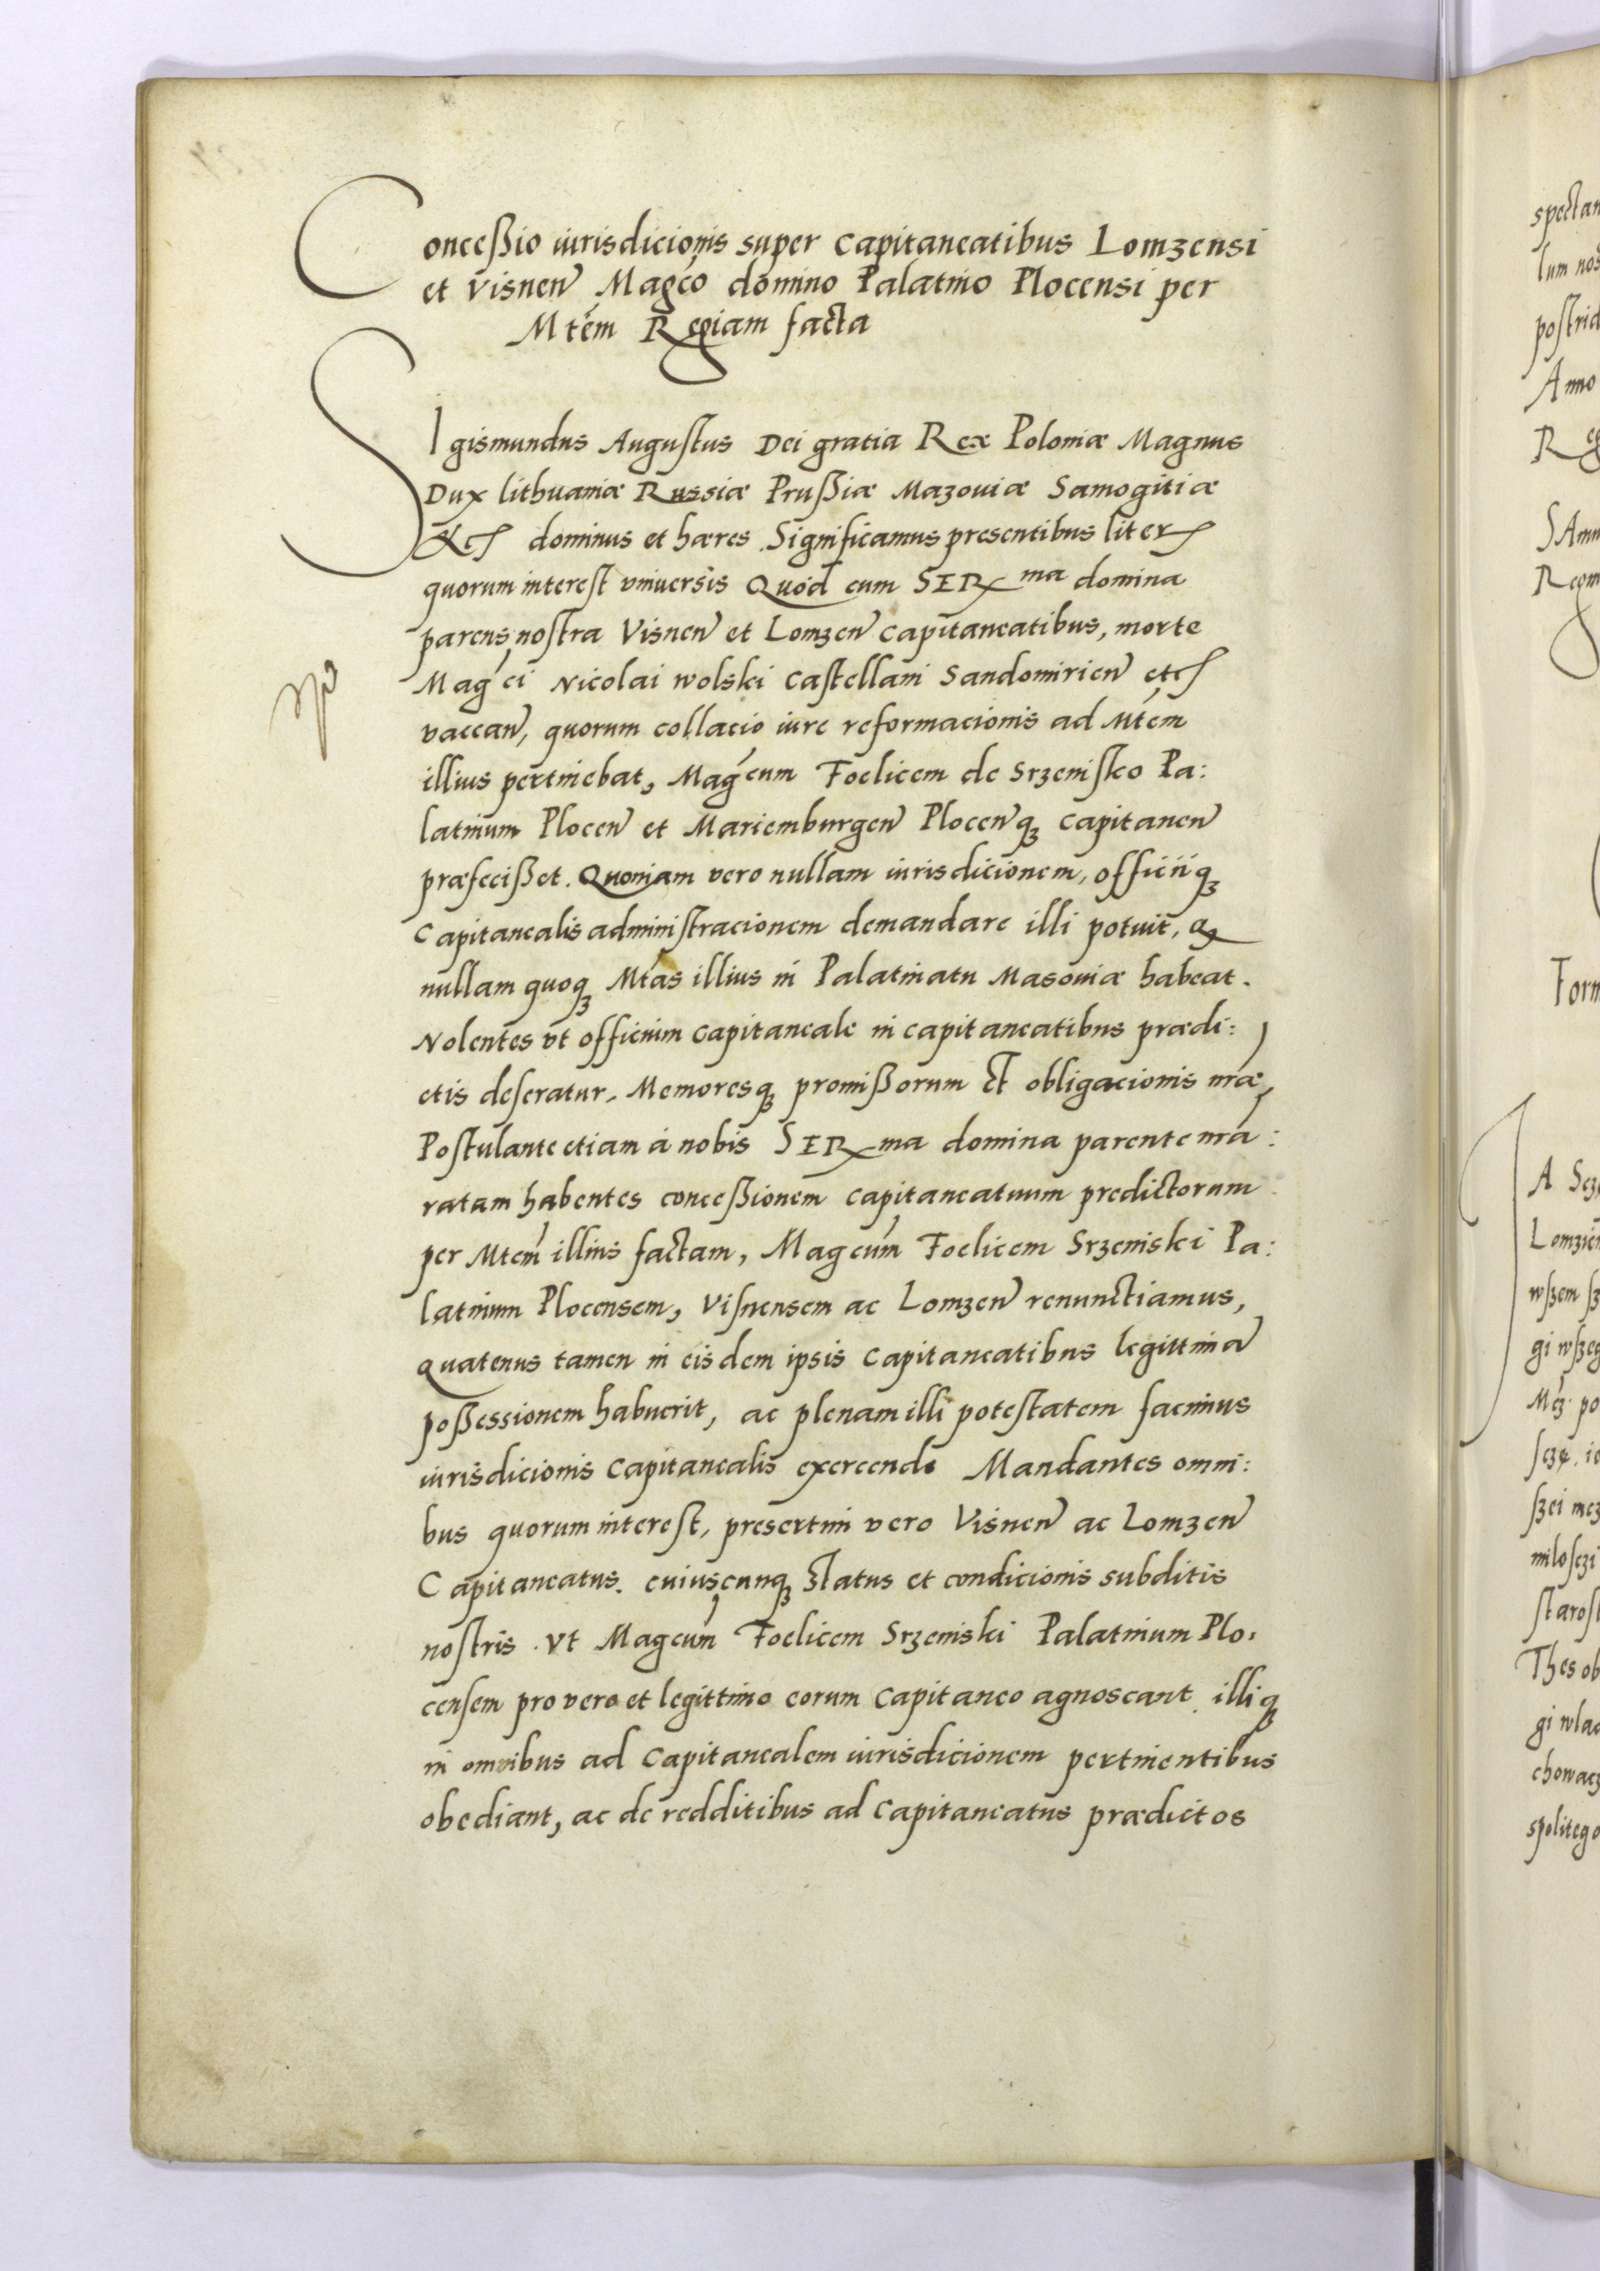 Conceßio iurisdicionis super Capitaneatibus Lomzensi
et visnen Magco domino Palatino Plocensi per
Mtem Regiam facta
SIgismundus Augustus Dei gratia Rex Poloniæ Magnus
Dux lithuaniæ Russiæ Prußiæ Mazouiæ Samogitiæ
&c dominus et hæres. Significamus presentibus liter
quorum interest vniuersis Quod cum SERma domina
parens nostra Visnen et Lomzen Capitaneatibus, morte
Magci Nicolai wolski Castellani Sandomirien etc
vaccan, quorum collacio iure reformacionis ad Mtem
illius pertinebat, Magcum Foelicem de Srzenisko Pa:
latinum Plocen et Mariemburgen Plocenq3 Capitanen
præfecißet. Quoniam vero nullam iurisdicionem, officiiq3
Capitanealis administracionem demandare illi potuit, q
nullam quoq3 Mtas illius in Palatinatu Masouiæ habeat.
Nolentes vt officium Capitaneale in capitaneatibus prædi:
ctis deseratur, Memoresq3 promißorum et obligacionis nræ,
Postulante etiam à nobis SERma domina parente nra:
ratam habentes conceßionem capitaneatuum predictorum
per Mtem illius factam, Magcum Foelicem Srzeniski Pa:
latinum Plocensem, Visnensem ac Lomzen renunctiamus,
quatenus tamen in eisdem ipsis Capitaneatibus legittima
poßessionem habuerit, ac plenam illi potestatem facimus
iurisdicionis Capitanealis exercende Mandantes omni:
bus quorum interest, presertim vero Visnen ac Lomzen
Capitaneatus. cuiuscunq3 status et condicionis subditis
nostris. vt Magcum Foelicem Srzeniski Palatinum Plo:
censem pro vero et legittimo eorum Capitaneo agnoscant. illiq3
in omnibus ad Capitanealem iurisdicionem pertinentibus
obediant, ac de redditibus ad Capitaneatus prædictos